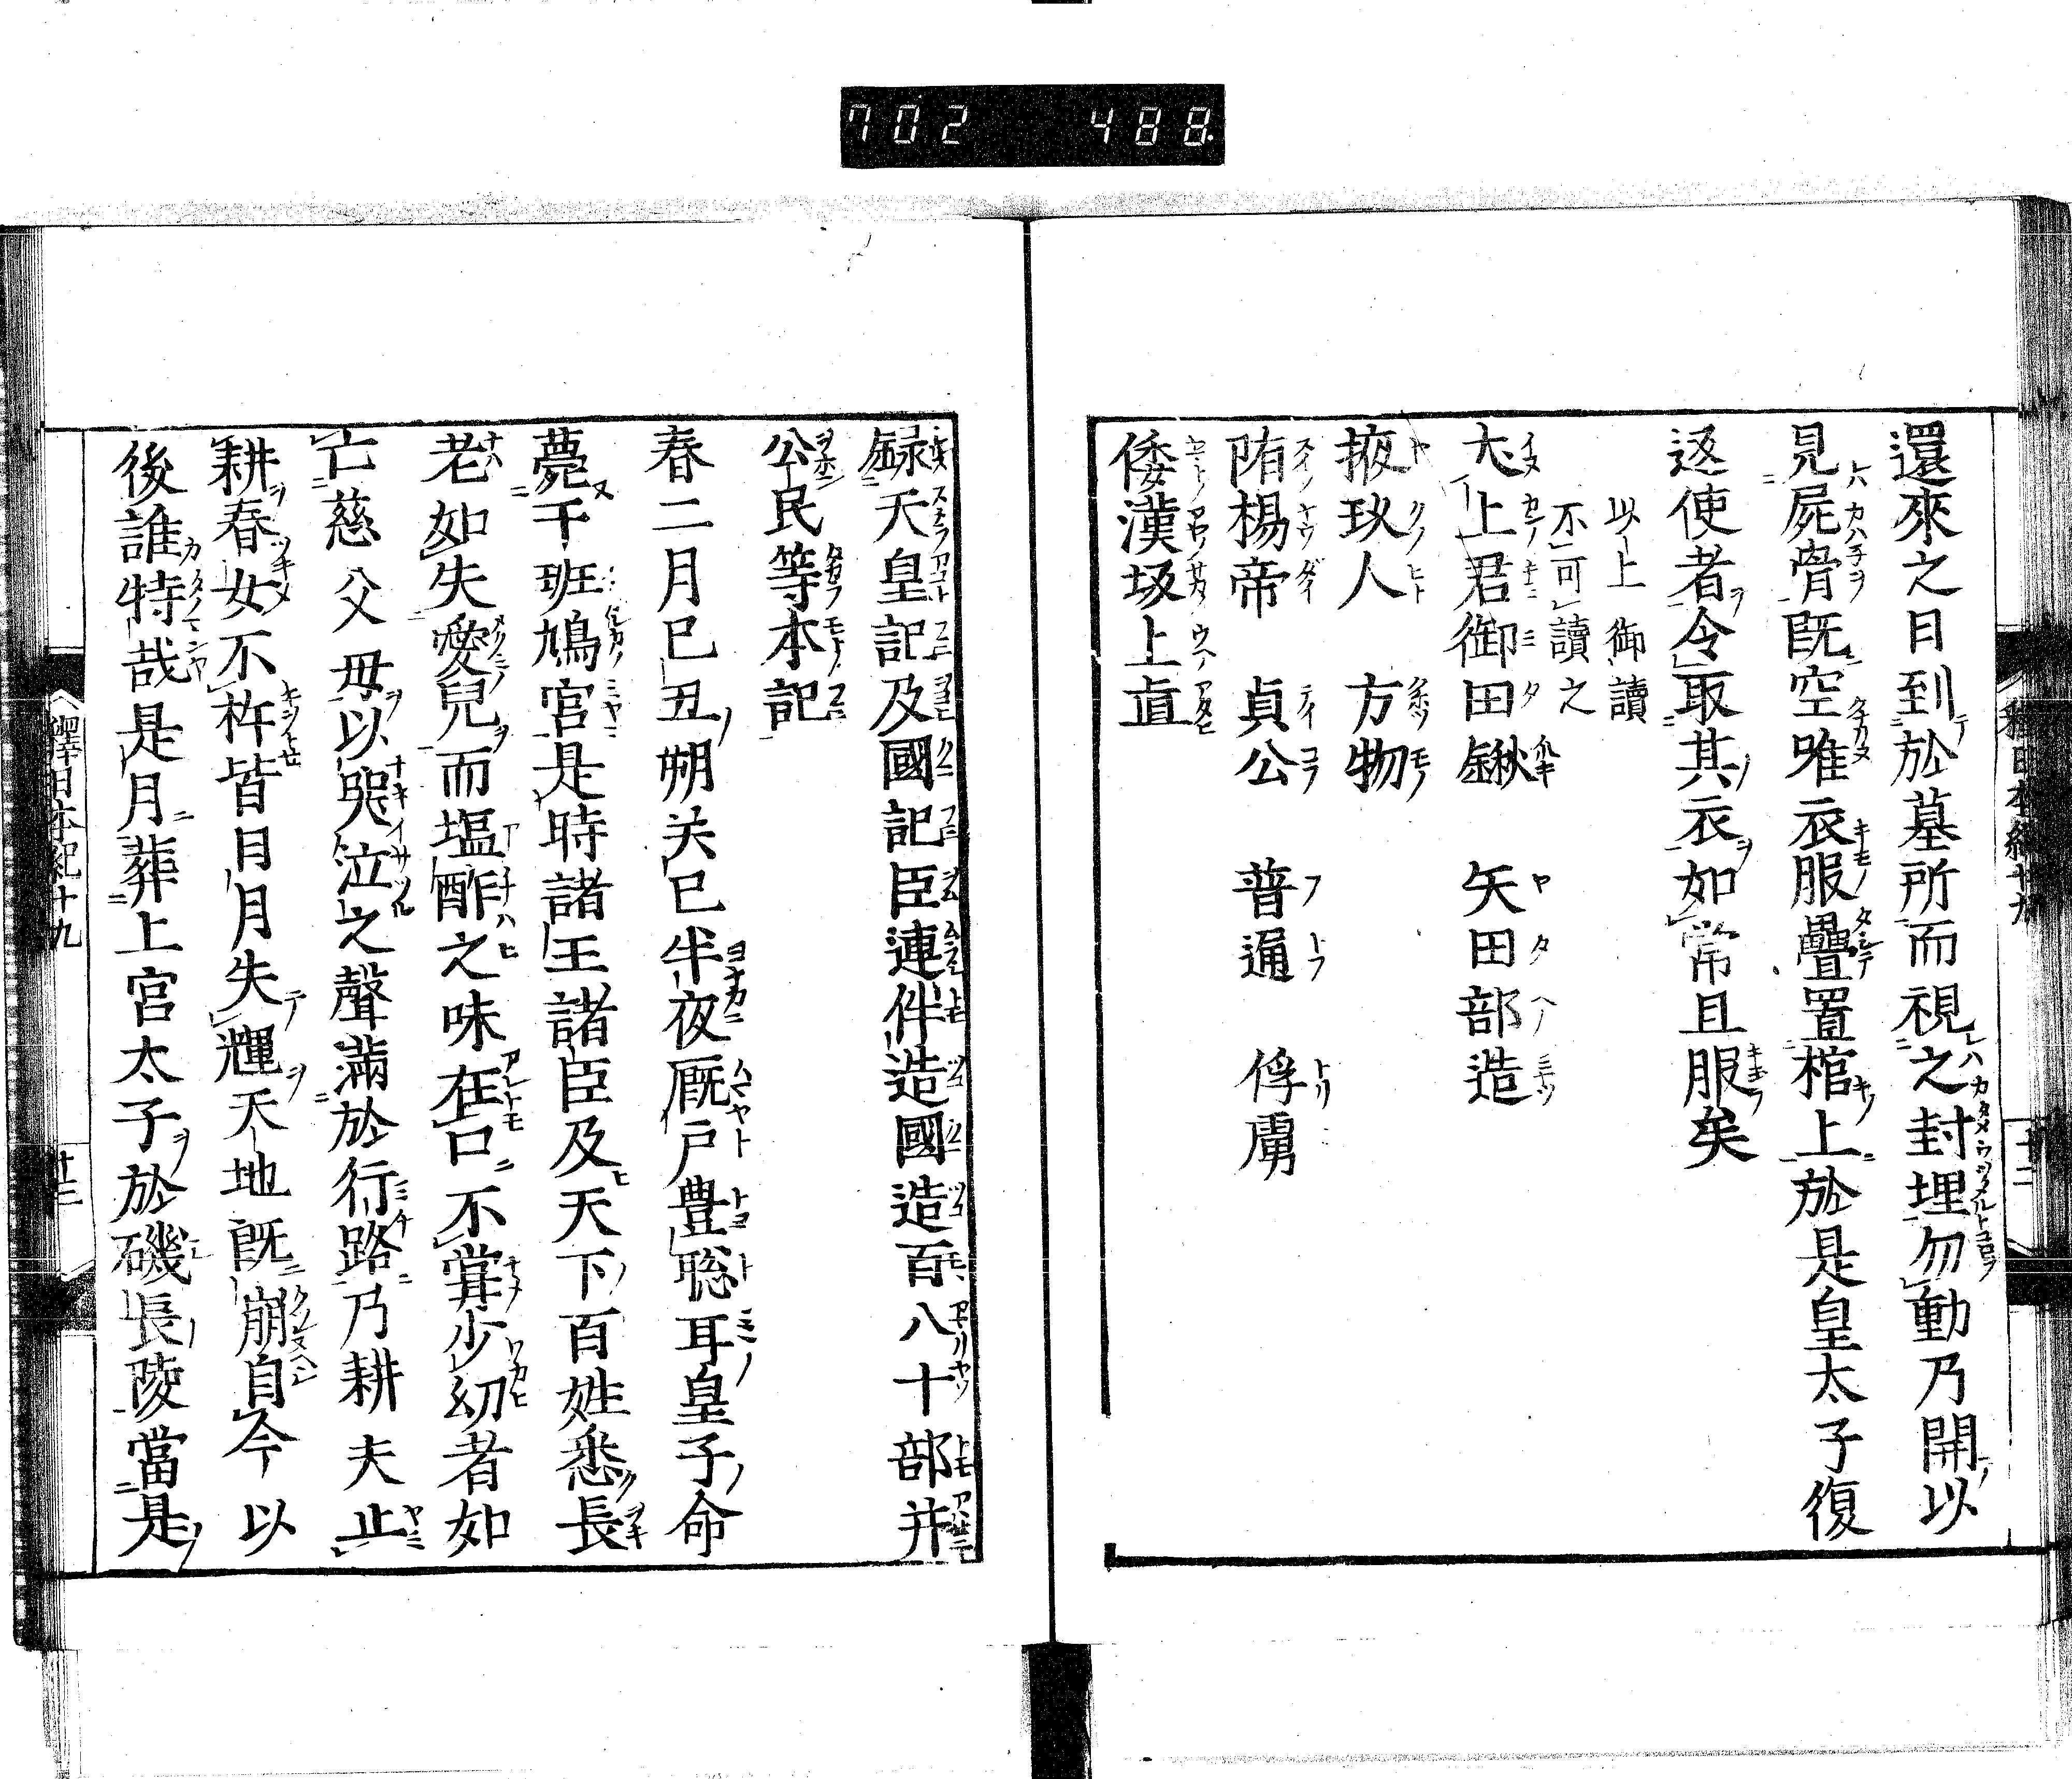 702 488
還來之日到於墓所而視之封埋勿動乃開以
見屍骨既空唯衣服疊置棺上於是皇太子復
返使者令取其衣如常且服矣
以上御讀
不可讀之
犬上君御田鍬 矢田部造
掖玖人 方物
隋楊帝 貞公 普通 俘虜
倭漢坂上直
釋日本紀十九
十二
録天皇記及國記臣連伴造國造百八十部并
公民等本記
春二月已丑朔癸巳半夜厩戸豊聡耳皇子命
薨于班鳩宮是時諸王諸臣及天下百姓悉長
老如失愛兒而塩酢之味在口不甞少幼者如
亡慈父母以哭泣之聲滿於行路乃耕夫止
耕舂女不杵皆日月失輝天地既崩自今以
後誰恃哉是月葬上宮太子於磯長陵當是
釋日本紀十九
十三